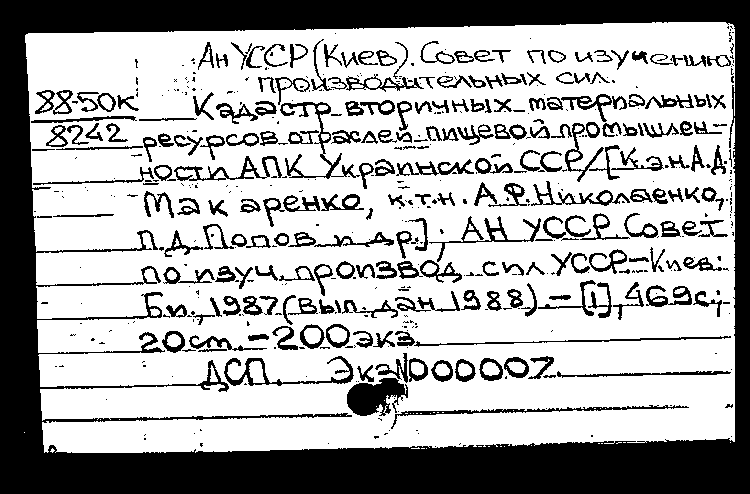 Ан УССР (Киев). Совет по изучению
производительных сил.
88-50к Кадастр вторичных материальных
8242 ресурсов отраслей пищевой промышлен-
ности АПК Украинской ССР/[к.э.н. А.Д.
Макаренко, к.т.н. А.Ф. Николаенко,
П.Д. Попов и др.]; АН УССР Совет
по изуч. производ. сил УССР-Киев:
Би., 1987 (вып. дан 1988). - [1], 469с.;
20ст. - 200экз.
ДСП. Экз N000007.